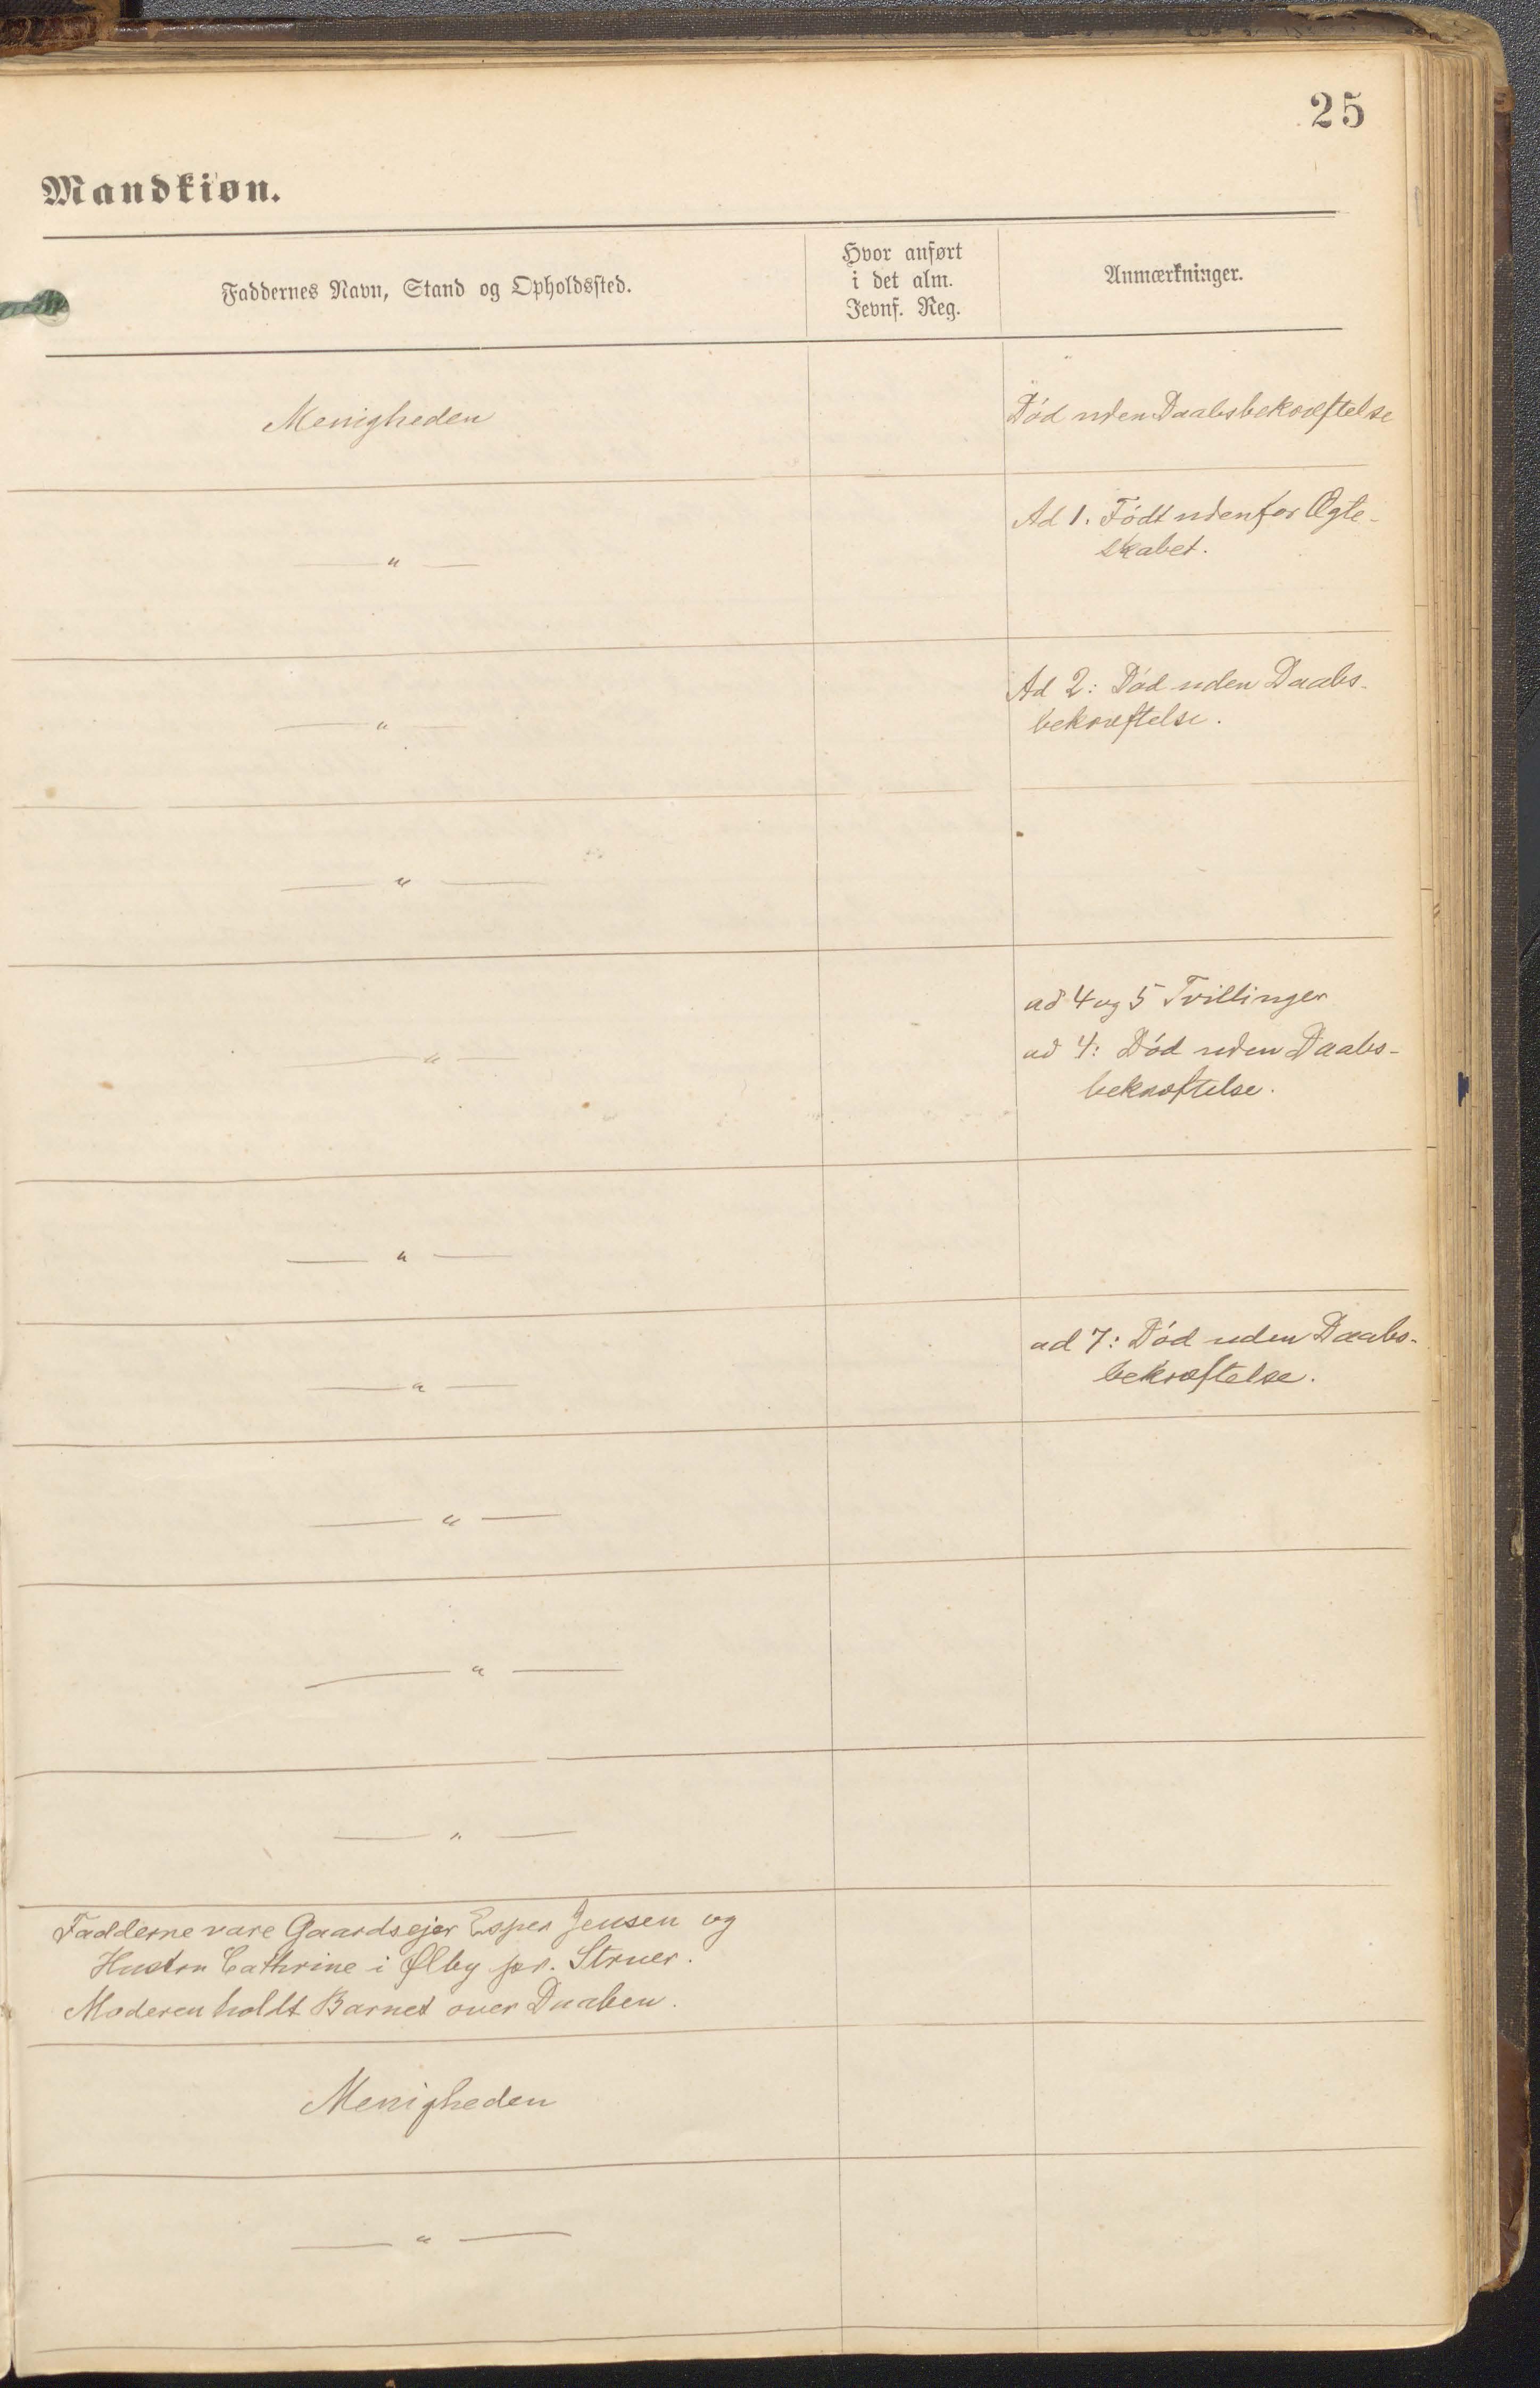 25
Mandkiøn.
Faddernes Navn, Stand og Opholdssted.
Hvor anført
i det alm.
Jevnf. Reg.
Anmærkninger.
Menigheden
Död uden Daabsbekræftelse
Ad 1. Födt udenfor Ægte-
skabet.
— " —
Ad 2: Död uden Daabs-
bekræftelse.
— " —
— " —
ad 4 og 5 Tvillinger
ad 4: Död uden Daabs-
bekræftelse.
— " —
— " —
ad 7: Död uden Daabs-
bekræftelse.
— " —
— " —
— " —
— " —
Fadderne vare Gaardsejer Esper Jensen og
Hustru Cathrine i Ølby pr. Struer.
Moderen holdt Barnet over Daaben.
Menigheden
— " —